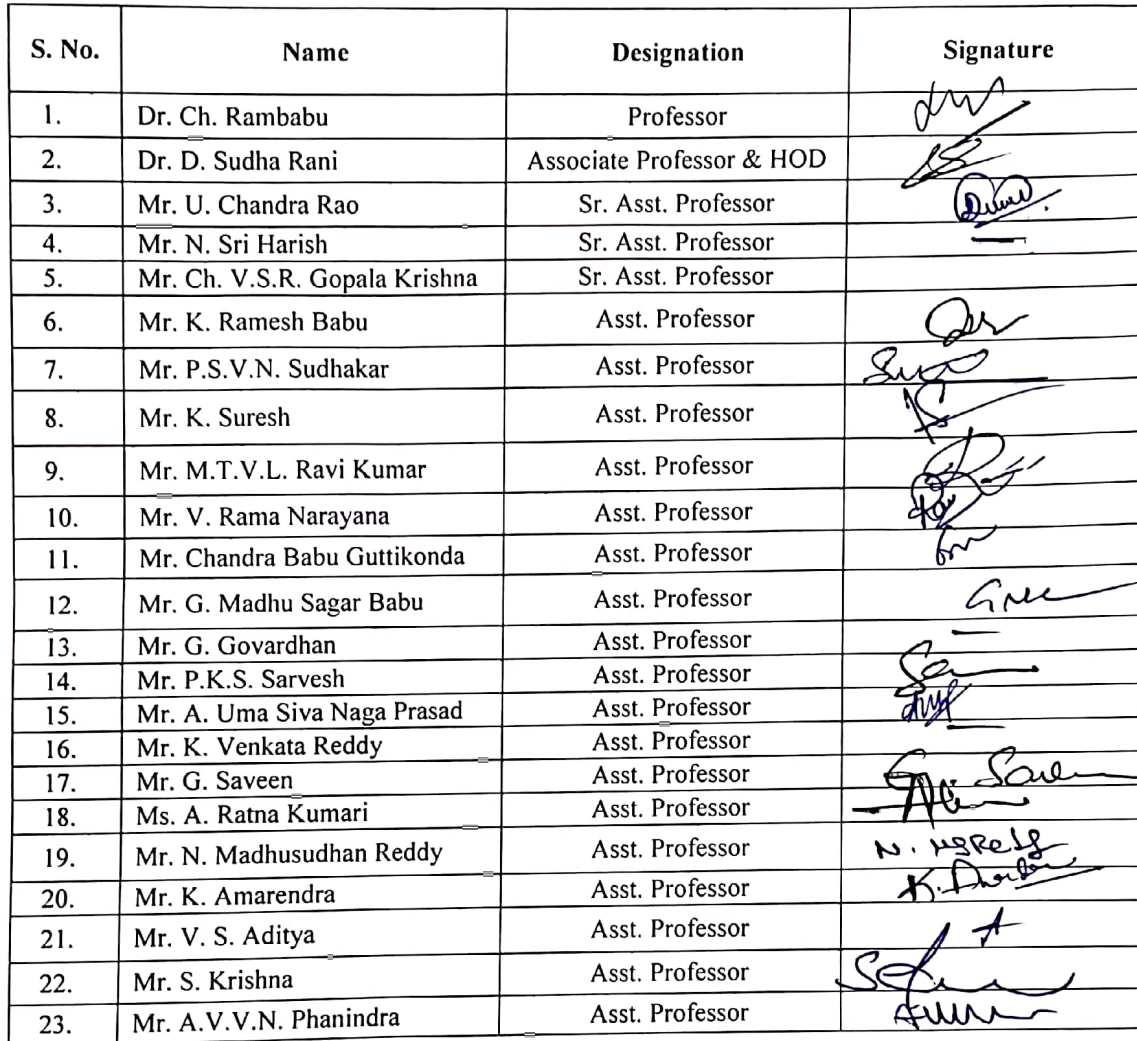 S. No. Name Designation Signature
1. Dr. Ch. Rambabu Professor
2. Dr. D. Sudha Rani Associate Professor & HOD
3. Mr. U. Chandra Rao Sr. Asst. Professor
4. Mr. N. Sri Harish Sr. Asst. Professor
5. Mr. Ch. V.S.R. Gopala Krishna Sr. Asst. Professor
6. Mr. K. Ramesh Babu Asst. Professor
7. Mr. P.S.V.N. Sudhakar Asst. Professor
8. Mr. K. Suresh Asst. Professor
9. Mr. M.T.V.L. Ravi Kumar Asst. Professor
10. Mr. V. Rama Narayana Asst. Professor
11. Mr. Chandra Babu Guttikonda Asst. Professor
12. Mr. G. Madhu Sagar Babu Asst. Professor
13. Mr. G. Govardhan Asst. Professor
14. Mr. P.K.S. Sarvesh Asst. Professor
15. Mr. A. Uma Siva Naga Prasad Asst. Professor
16. Mr. K. Venkata Reddy Asst. Professor
17. Mr. G. Saveen Asst. Professor
18. Ms. A. Ratna Kumari Asst. Professor
19. Mr. N. Madhusudhan Reddy Asst. Professor
20. Mr. K. Amarendra Asst. Professor
21. Mr. V. S. Aditya Asst. Professor
22. Mr. S. Krishna Asst. Professor
23. Mr. A.V.V.N. Phanindra Asst. Professor